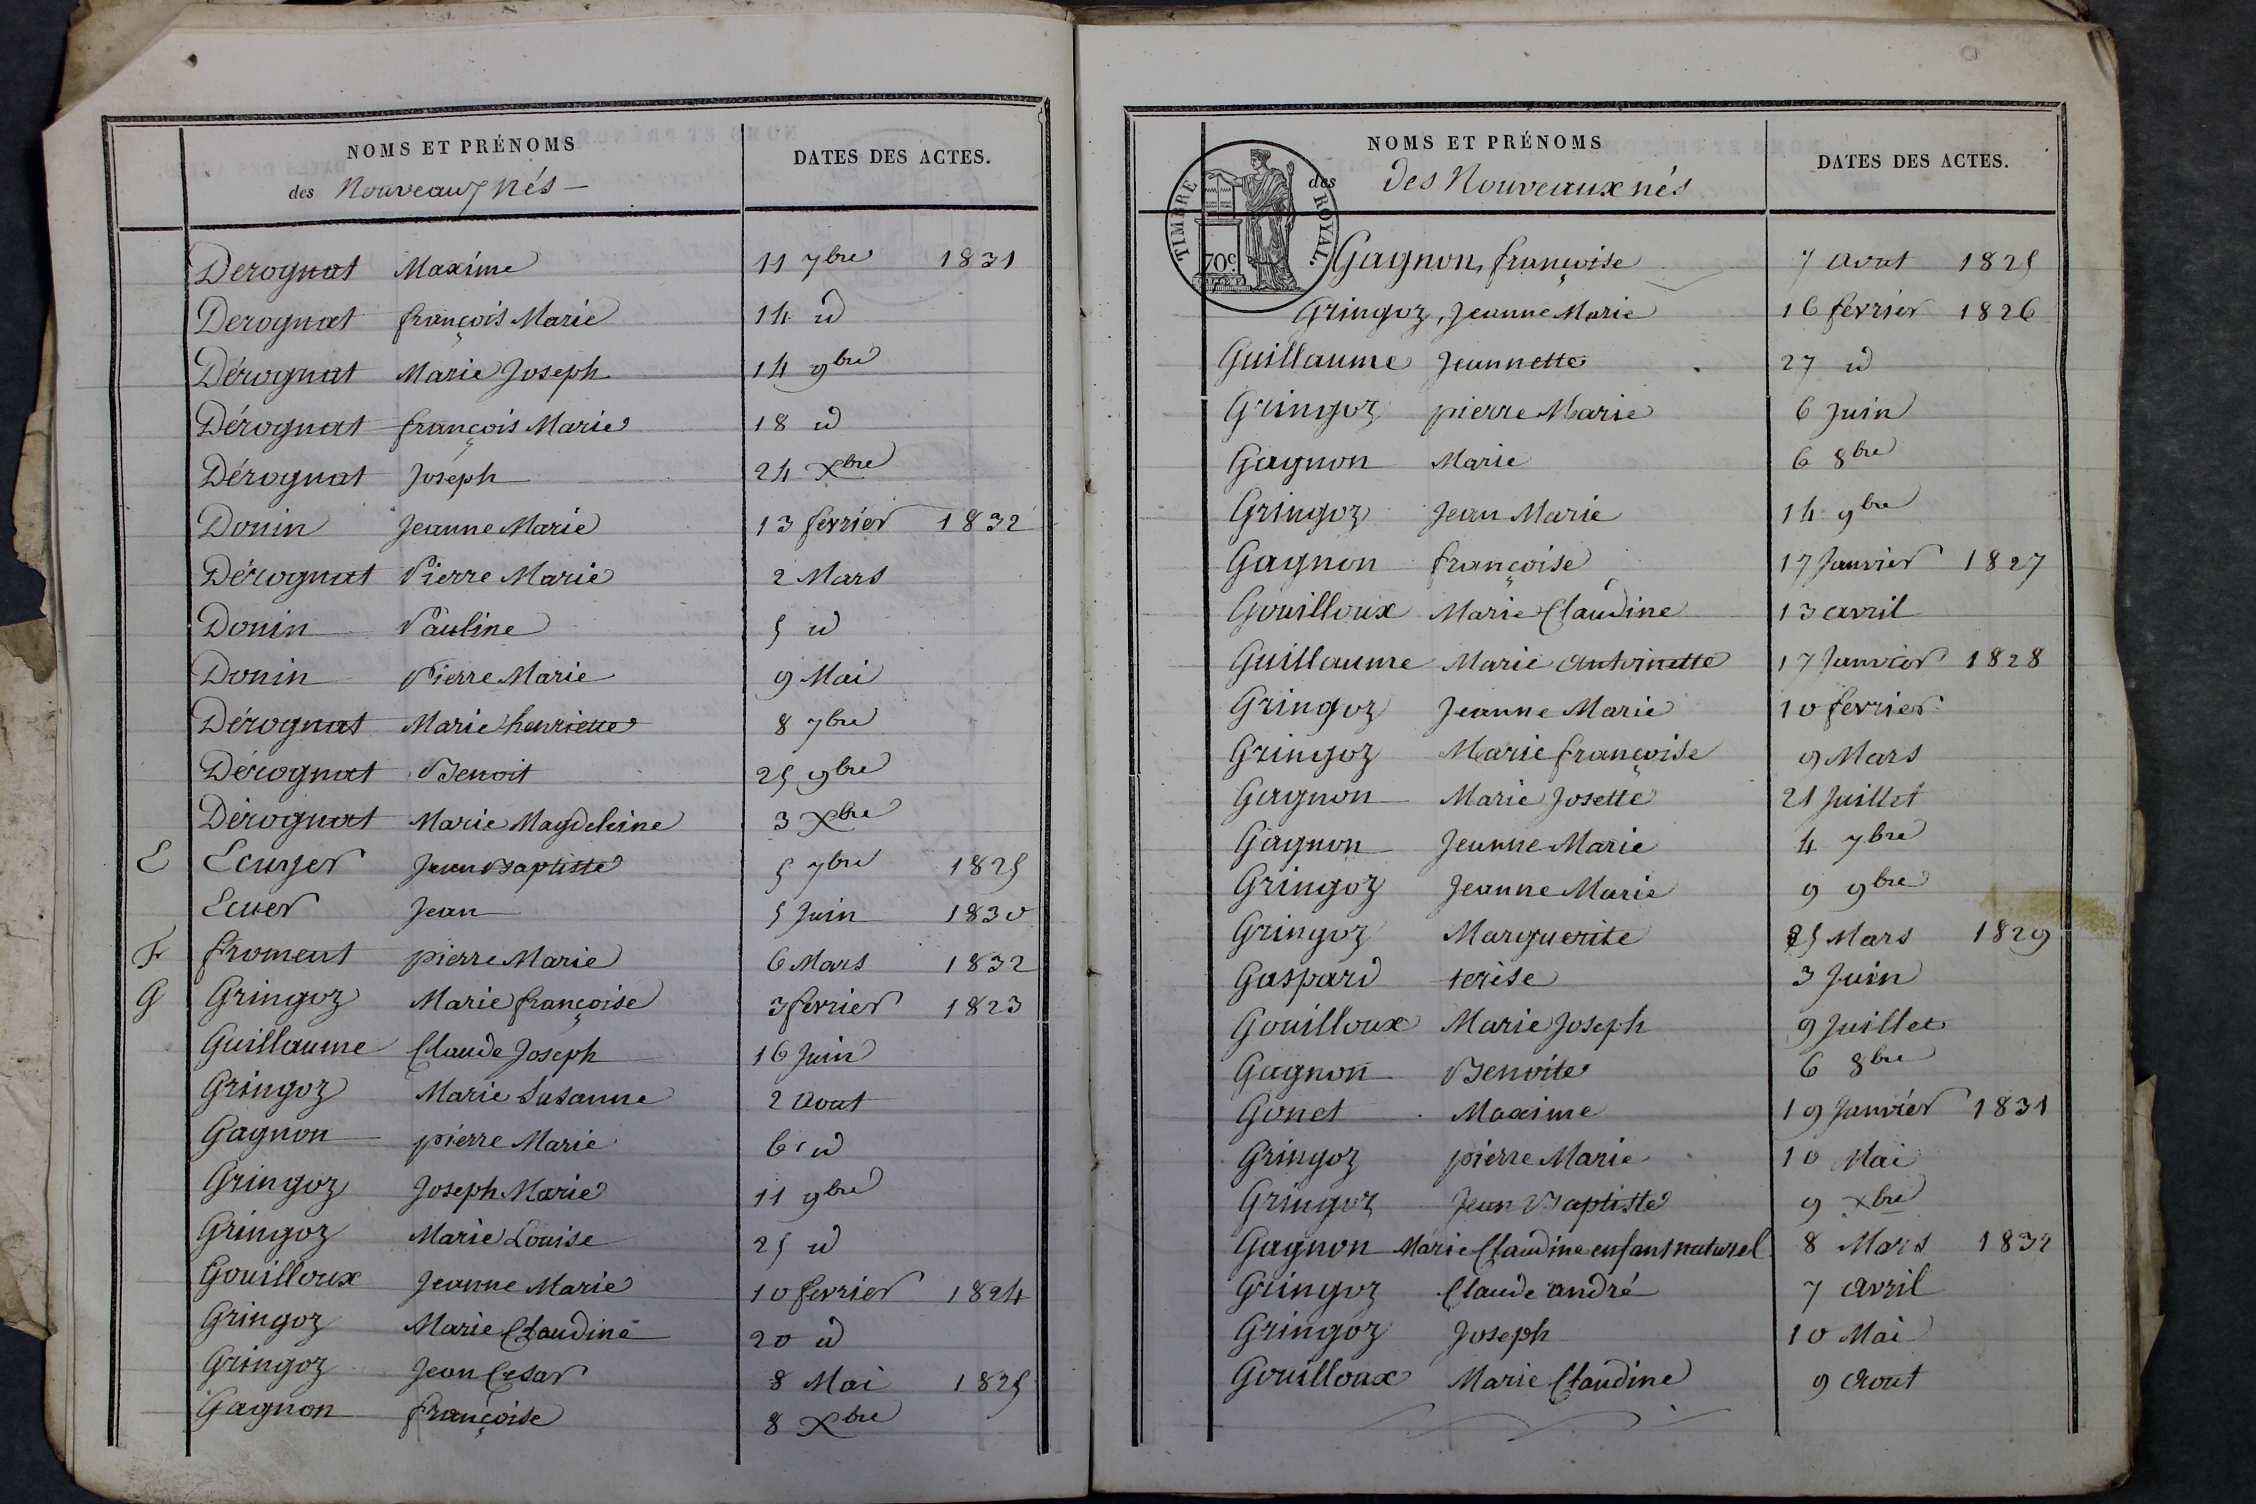 NOMS ET PRÉNOMS
DATES DES ACTES.
des Nouveaux nés
Derognat Maxime 11 7bre 1831
Derognat françois Marie 14 id
Dérognat Marie Joseph 14 9bre
Dérognat françois Marie 18 id
Dérognat Joseph 24 Xbre
Donin Jeanne Marie 13 fevrier 1832
Dérognat Pierre Marie 2 Mars
Donin Pauline 5 id
Donin Pierre Marie 9 Mai
Dérognat Marie henriette 8 7bre
Dérognat Benoit 25 9bre
Dérognat Marie Magdeleine 3 Xbre
E Ecuyer Jean Baptiste 5 7bre 1825
Ecuer Jean 5 Juin 1830
F froment pierre Marie 6 Mars 1832
G Gringoz Marie françoise 3 fevrier 1823
Guillaume Claude Joseph 16 Juin
Gringoz Marie Susanne 2 aout
Gagnon pierre Marie 6 id
Gringoz Joseph Marie 11 9bre
Gringoz Marie Louise 25 id
Gouilloux Jeanne Marie 10 fevrier 1824
Gringoz Marie Claudine 20 id
Gringoz Jean Cesar 8 Mai 1825
Gagnon françoise 8 Xbre
NOMS ET PRÉNOMS
DATES DES ACTES.
des des Nouveaux nés
TIMBRE ROYAL.
70c.
Gagnon, françoise 7 avril 1825
Gringoz, Jeanne Marie 16 fevrier 1826
Guillaume Jeannette 27 id
Gringoz pierre Marie 6 Juin
Gagnon Marie 6 8bre
Gringoz Jean Marie 14 9bre
Gagnon françoise 17 Janvier 1827
Gouilloux Marie Claudine 13 avril
Guillaume Marie antoinette 17 Janvier 1828
Gringoz Jeanne Marie 10 fevrier
Gringoz Marie françoise 9 Mars
Gagnon Marie Josette 21 Juillet
Gagnon Jeanne Marie 4 7bre
Gringoz Jeanne Marie 9 9bre
Gringoz Marguerite 25 Mars 1829
Gaspard terèse 3 Juin
Gouilloux Marie Joseph 9 Juillet
Gagnon Benoite 6 8bre
Gonet Maxime 19 Janvier 1831
Gringoz pierre Marie 10 Mai
Gringoz Jean Baptiste 9 Xbre
Gagnon Marie Claudine enfant naturel 8 Mars 1832
Gringoz Claude andré 7 avril
Gringoz Joseph 10 Mai
Gouilloux Marie Claudine 9 aout